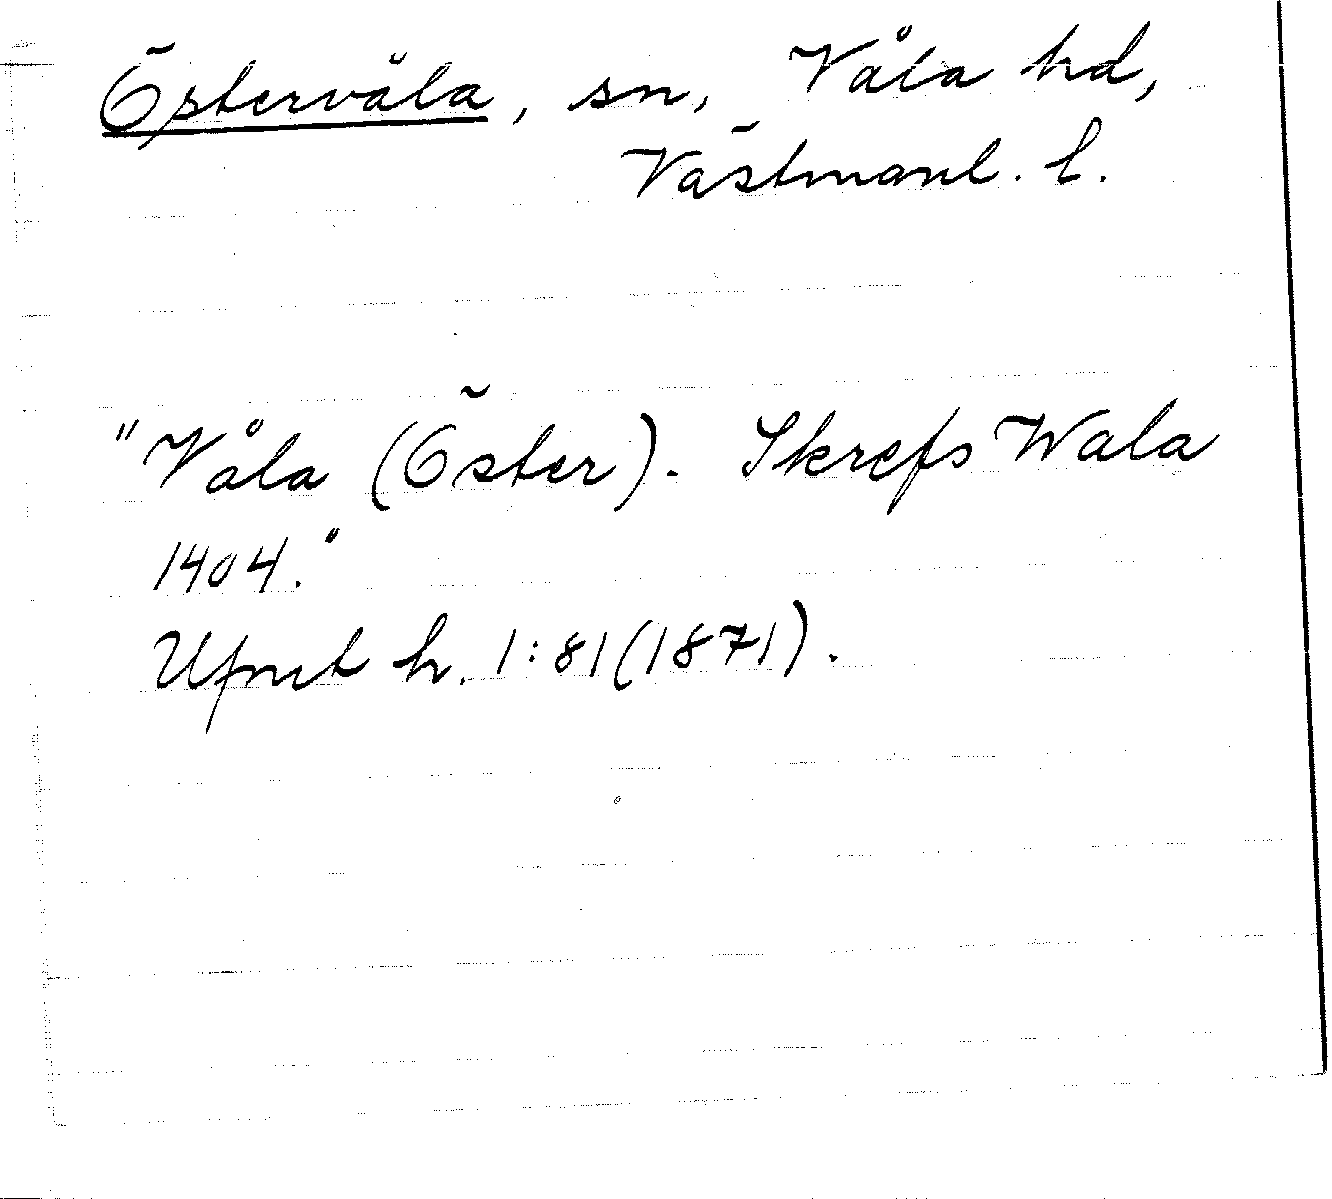 Östervåla, sn, Våla hd,
Västmanl. l.
"Våla (Öster). Skrefs Wala
1404."
Ufmt h. 1:81 (1871).